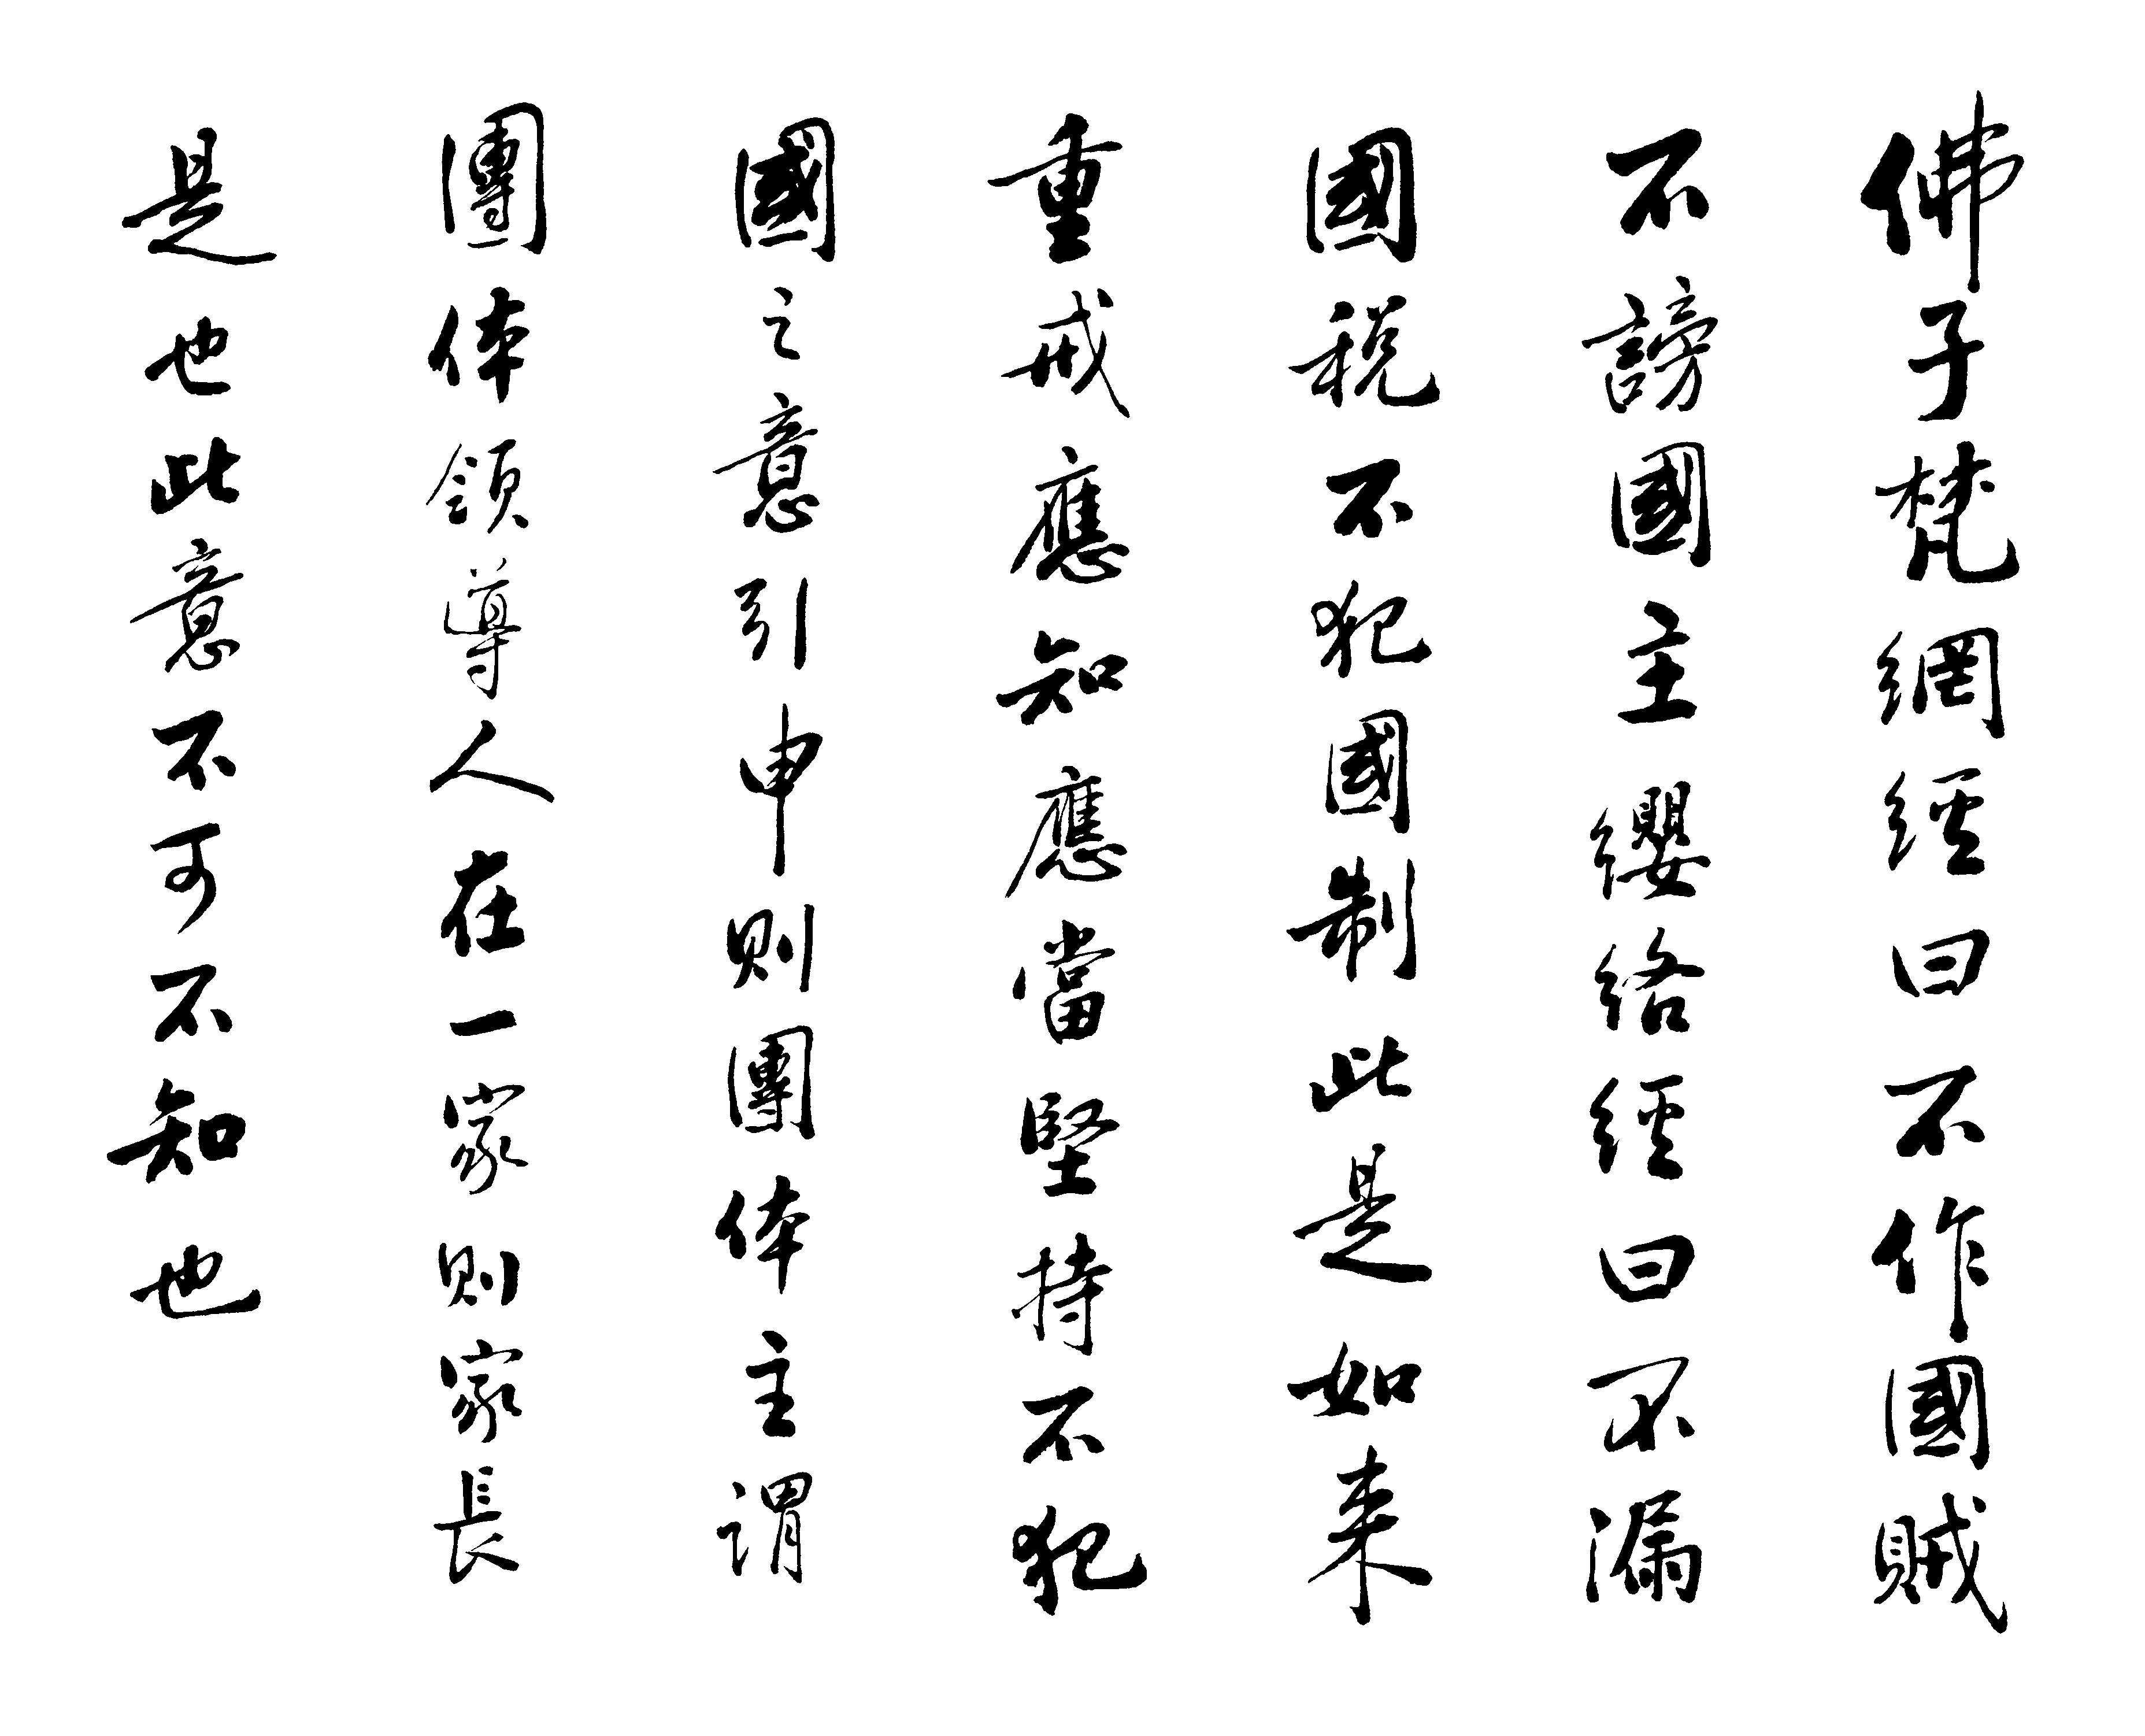 佛子梵網經曰不作國賊
不謗國主纓絡經曰不漏
國稅不犯國制此是如来
重戒應知應當堅持不犯
國之意引申則團体主謂
團体領導人在一家則家長
是也此意不可不知也